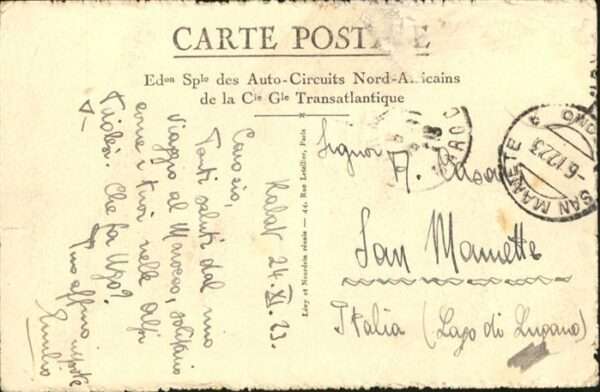 CARTE POSTALE
Edon Sple des Auto-Circuits Nord-Africains
de la Cie Gle Transatlantique
Rabat 24.XI.23.
Caro zio,
Tanti saluti dal mio
viaggio al Marocco, solitario
come i tuoi nelle Alpi
Tirolesi. Che fa Ugo?
Tuo affmo nipote
Emilio
Lévy et Neurdein réunis — 44, Rue Letellier, Paris
Signor
A.
San Mamette
Italia (Lago di Lugano)
SAN MAMETE
-6.12.23